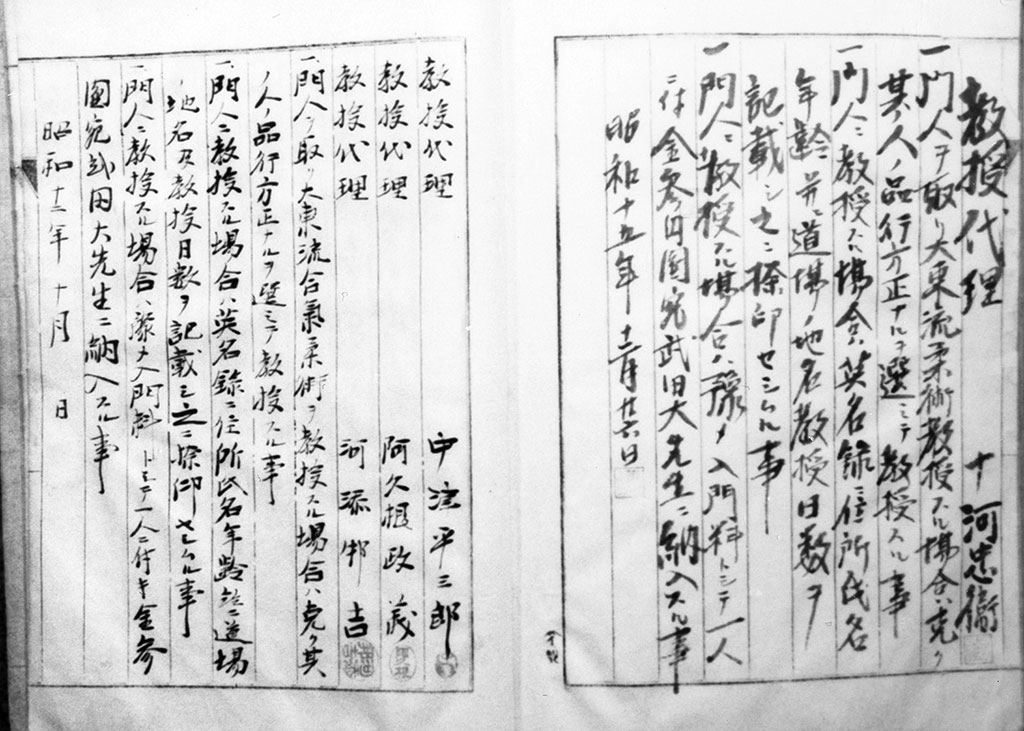 教授代理 十河忠衛
一門人ヲ取リ大東流柔術教授スル場合ハ克ク
其ノ人ノ品行方正ナルヲ選ミテ教授スル事
一門人ニ教授スル場合ハ英名録ニ住所氏名
年齢並ニ道場ノ地名教授日数ヲ
記載シ之ニ捺印セシムル事
一門人ニ教授スル場合ハ予メ入門料トシテ一人
ニ付金参円図宛武田大先生ニ納入スル事
昭和十五年十二月廿六日
教授代理 中津平三郎
教授代理 阿久根政義
教授代理 河添邦吉
一門人ヲ取リ大東流合氣柔術ヲ教授スル場合ハ克ク其
ノ人品行方正ナルヲ選ミテ教授スル事
一門人ニ教授スル場合ハ英名録ニ住所氏名年齢並ニ道場
地名及教授日数ヲ記載シ之ニ捺印セシムル事
一門人ニ教授スル場合ハ予メ入門料トシテ一人ニ付キ金参
圓宛武田大先生ニ納入スル事
昭和十二年十月 日